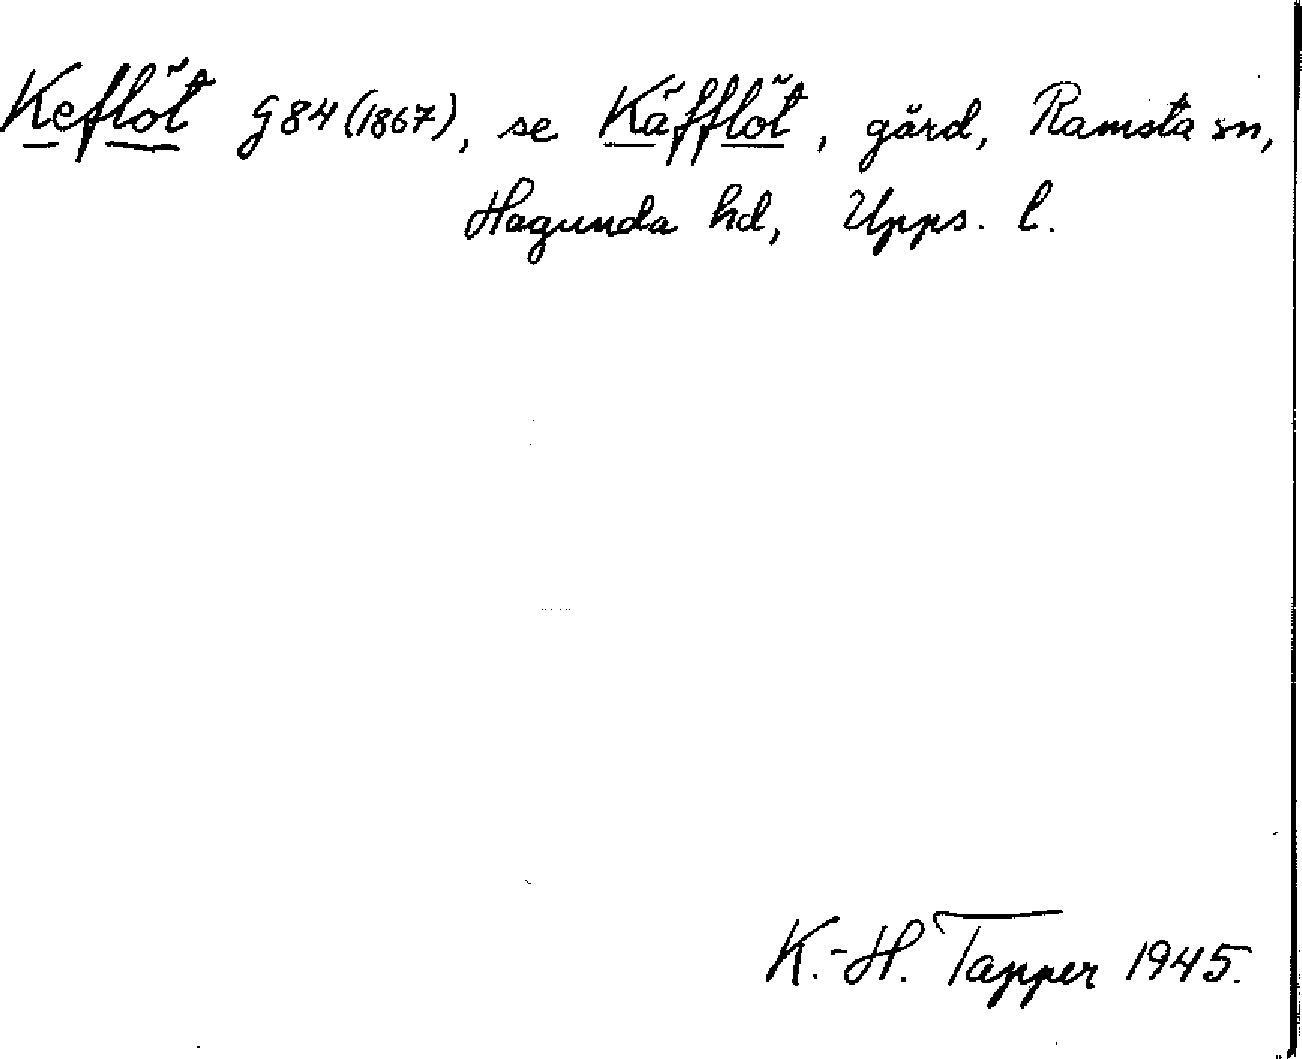 Keflöt G84 (1867), se Käfflöt, gård, Ramsta sn,
Hagunda hd, Upps. l.
K.-H. Tapper 1945.